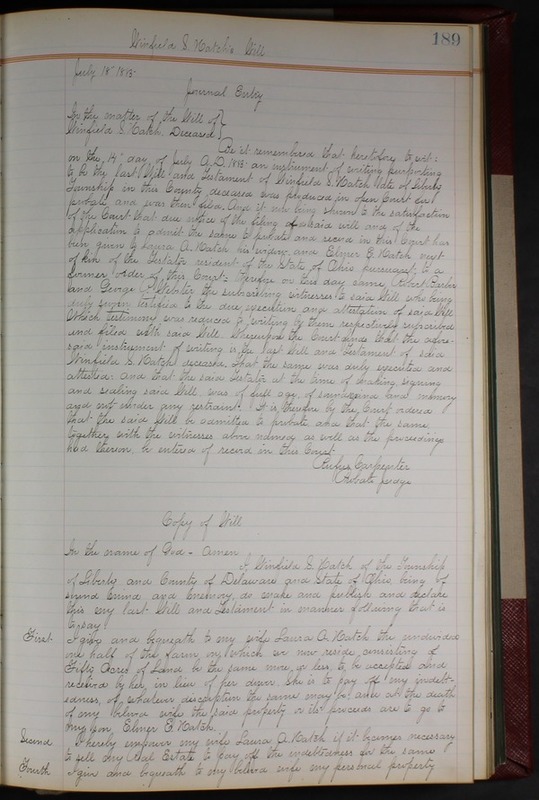 Winfield S. Hatch's Will
189
July 18" 1893.
Journal Entry
In the matter of the Will of
Winfield S. Hatch. Deceased
Be it remembered that heretofore to wit:
on the 14" day of July A.D. 1893. an instrument of writing purporting
to be the last Will and Testament of Winfield S. Hatch late of Liberty
Township in this County deceased was produced in open Court for
probate and was then filed. And it now being shown to the satisfaction
of the Court that due notice of the filing of said will and of the
application to admit the same to probate and record in this Court has
been given to Laura A. Hatch his widow, and Elmer E. Hatch next
of kin of the testator resident of the State of Ohio pursuant to a
former order of this Court: Therefore on this day came Robert
and George Webster the subscribing witnesses to said Will who being
duly sworn testified to the due execution and attestation of said Will
Which testimony was reduced to writing by them respectively subscribed
and filed with said Will. Whereupon the Court finds that the afore-
said instrument of writing is the last Will and Testament of said
Winfield S. Hatch deceased, that the same was duly executed and
attested: and that the said testator at the time of making signing
and sealing said Will was of full age of sound mind and memory
and not under any restraint. It is therefore by the Court ordered
that the said Will be admitted to probate and that the same
together with the witnesses above named as well as the proceedings
had thereon be entered of record in this Court.
Rufus Carpenter
Probate Judge
Copy of Will
In the name of God - Amen
I Winfield S. Hatch of the Township
of Liberty and County of Delaware and State of Ohio being of
sound mind and memory, do make and publish and declare
this my last Will and Testament in manner following that is
to say
First. I give and bequeath to my wife Laura A. Hatch the undivided
one half of the farm on which we now reside, consisting of
Fifty Acres of Land be the same more or less, to be accepted and
received by her, in lieu of her dower. She is to pay off my indebt-
edness, of whatever discription the same may be. and at the death
of my beloved wife the said property or its proceeds are to go to
my son Elmer E. Hatch.
Second I hereby empower my wife Laura A. Hatch if it becomes necessary
to sell my Real Estate to pay off the indebtedness for the same
Fourth I give and bequeath to my beloved wife my personal property